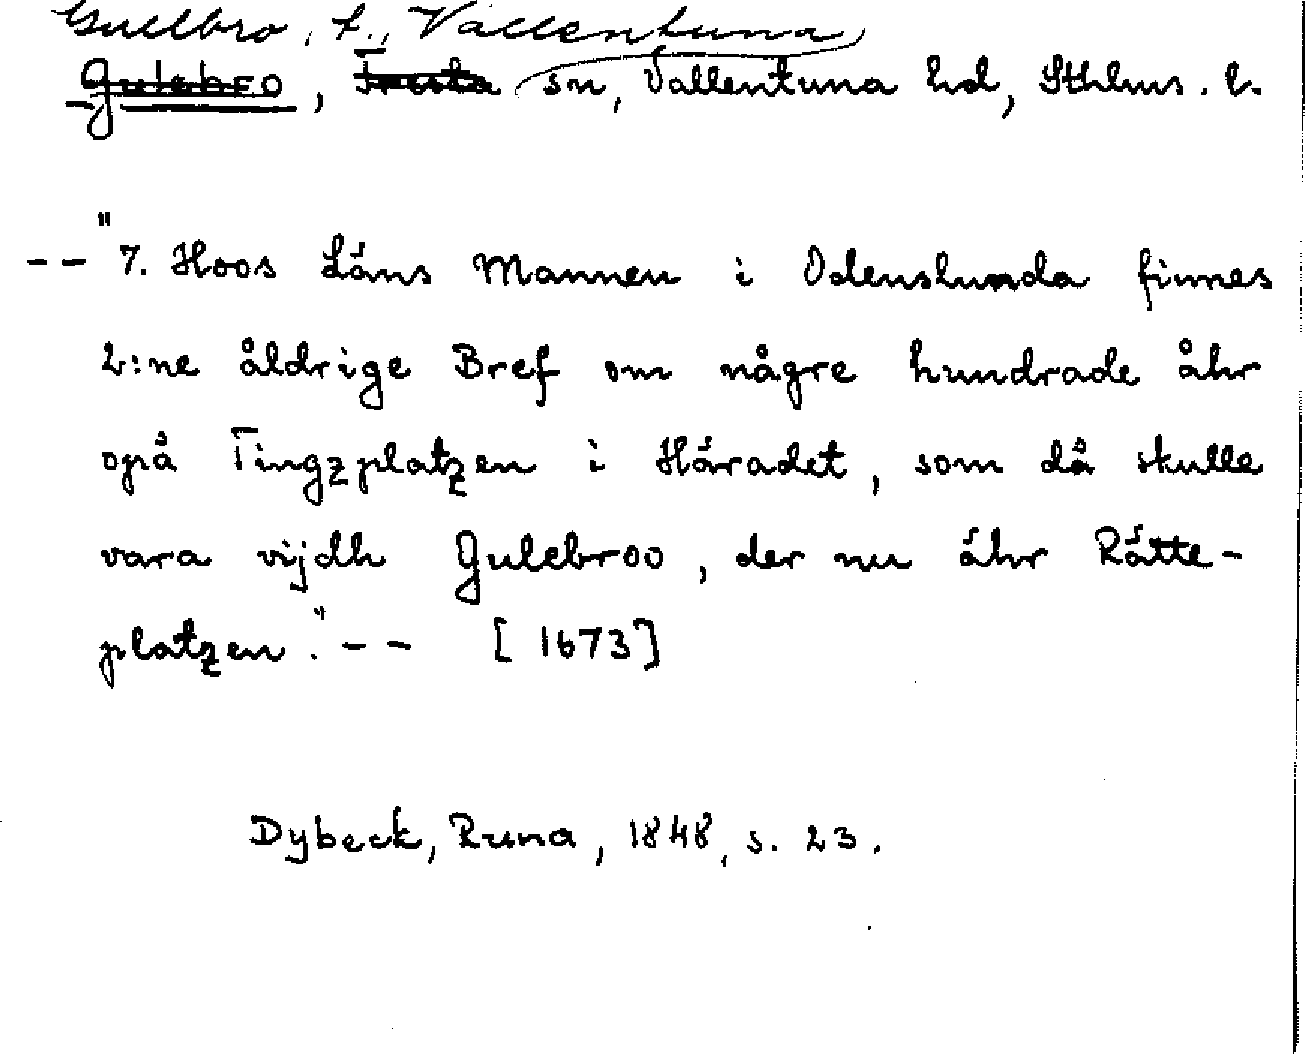 Gullbro, t., Vallentuna
Gulebro, Fresta sn, Vallentuna hd, Sthlms. l.
-- "7. Hoos Läns Mannen i Odenslunda finnes
2:ne åldrige Bref om någre hundrade åhr
opå Tingzplatzen i Häradet, som då skulle
vara vijdh Gulebroo, der nu ähr Rätte-
platzen." -- [1673]
Dybeck, Runa, 1848, s. 23.